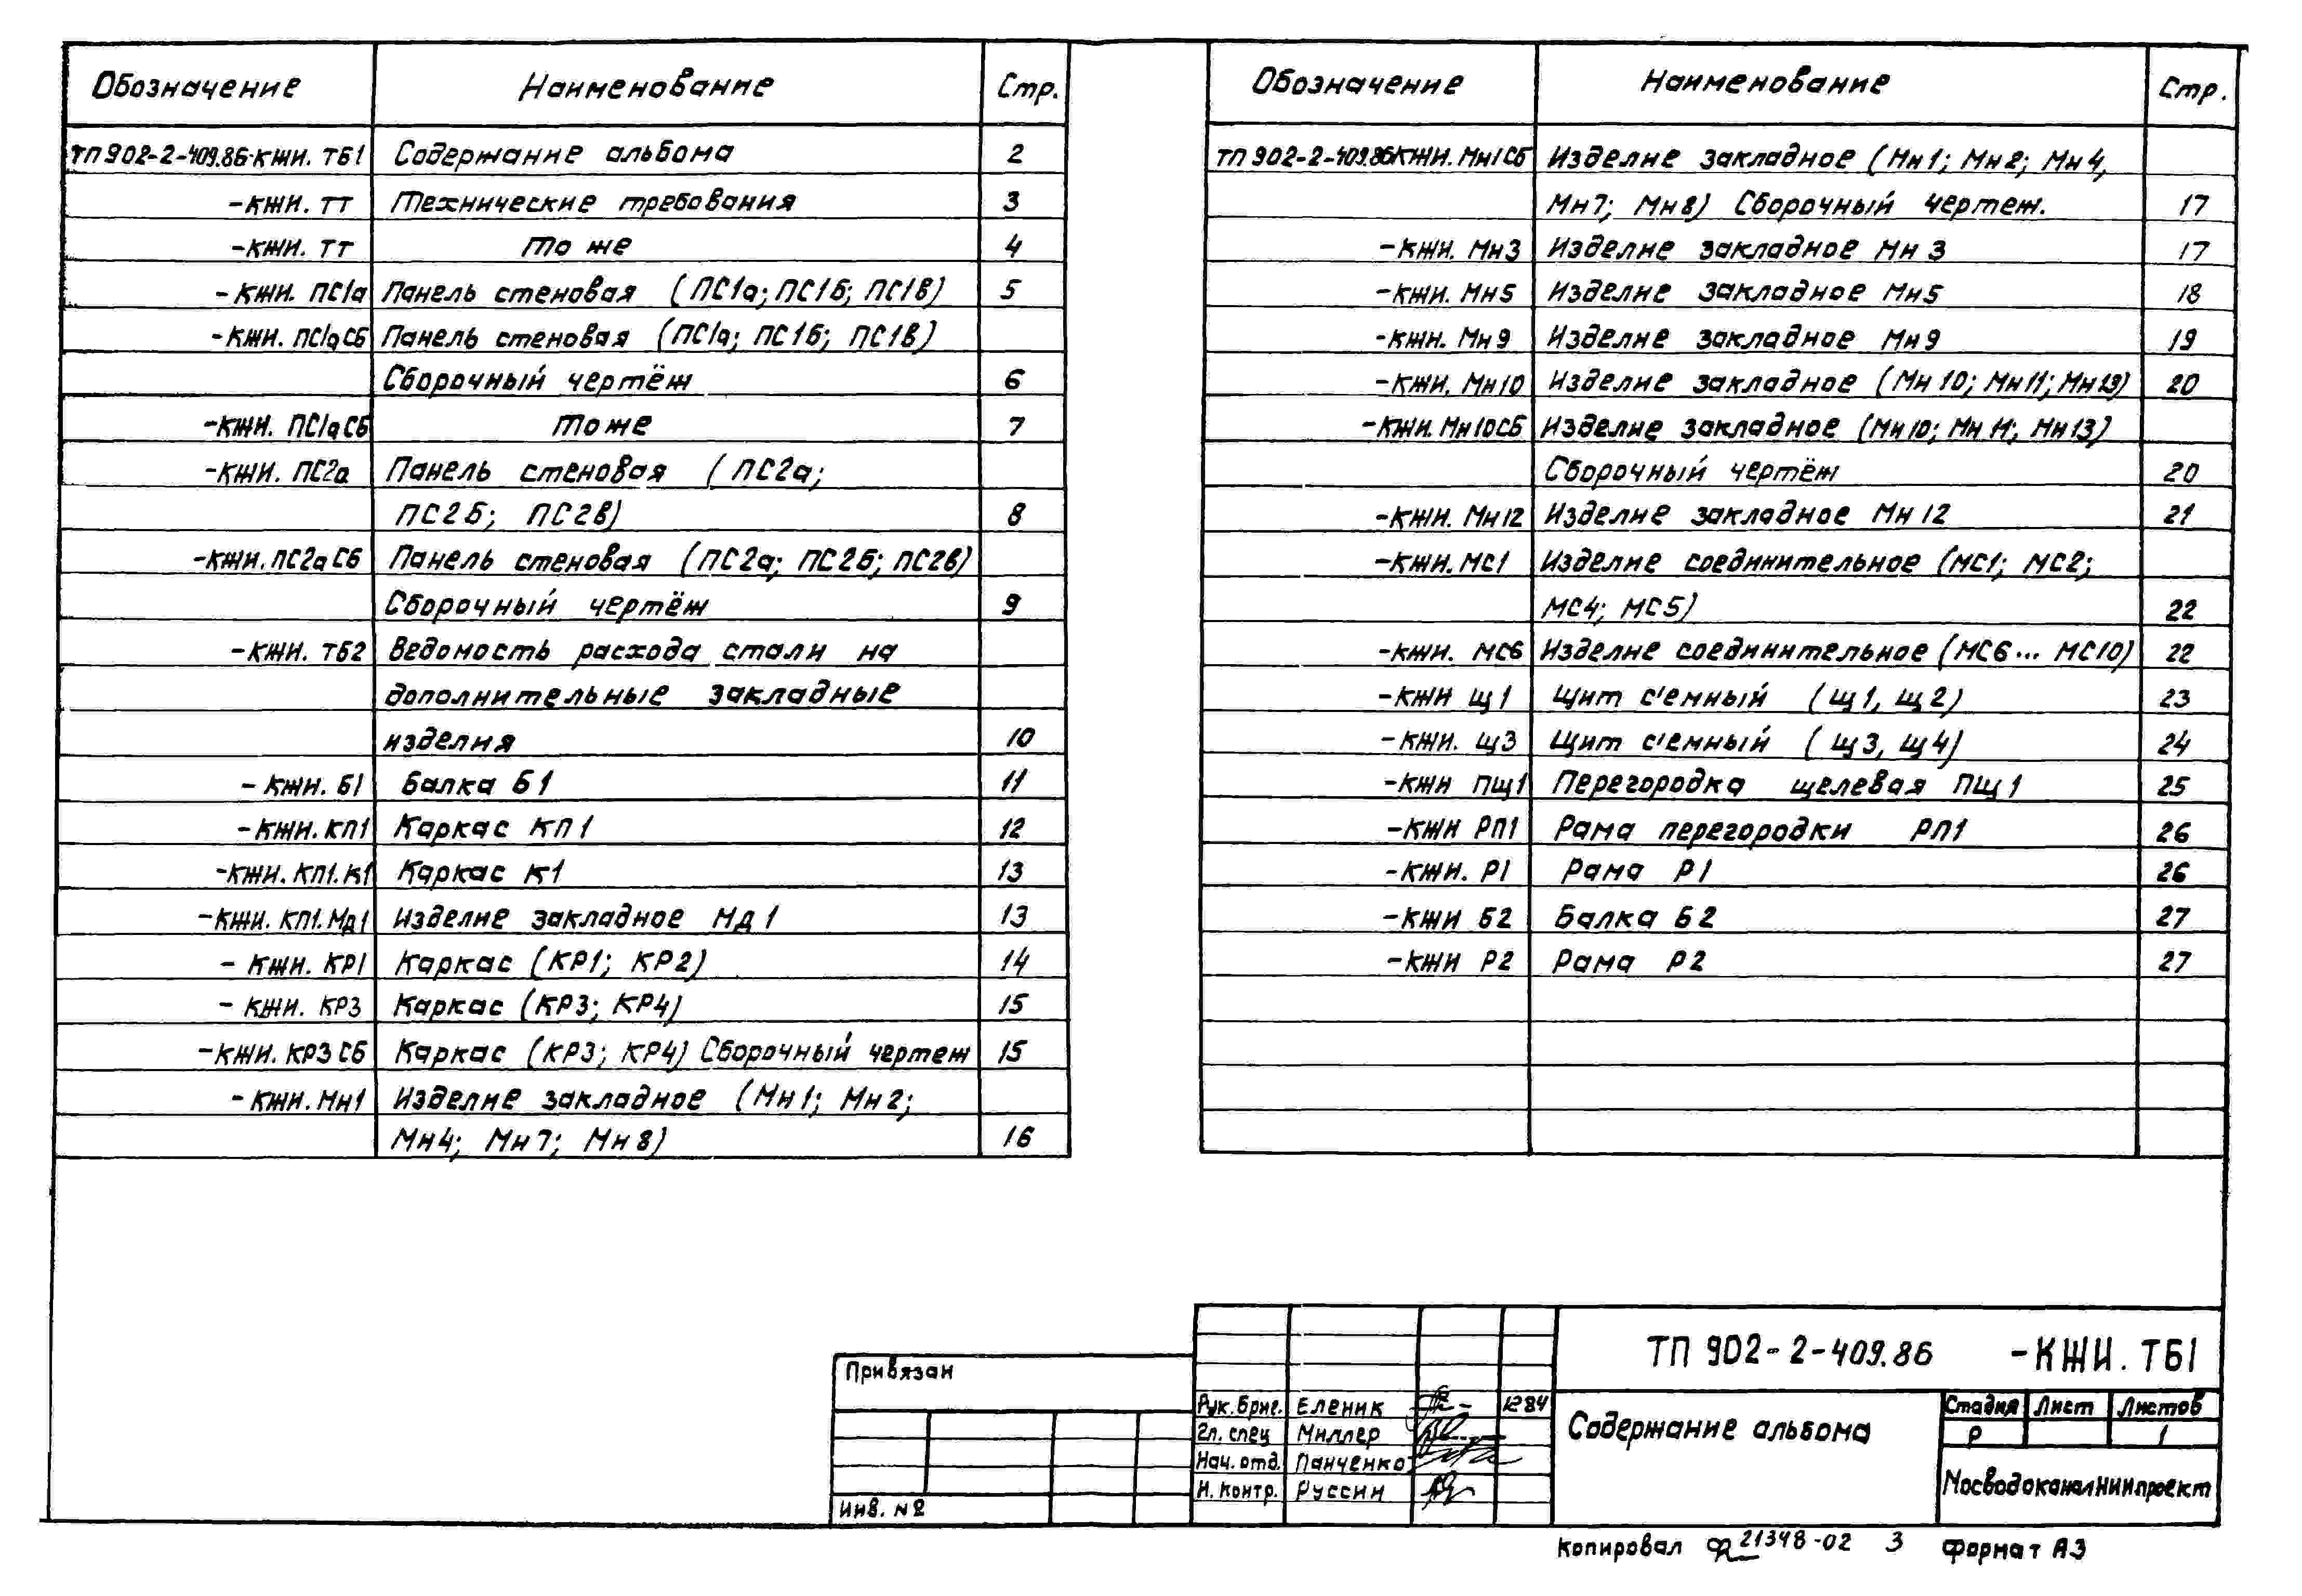 Обозначение Наименование Стр.
ТП902-2-409.86-КЖИ.ТБ1 Содержание альбома 2
-КЖИ. ТТ Технические требования 3
-КЖИ. ТТ То же 4
-КЖИ. ПС1а Панель стеновая (ПС1а; ПС1б; ПС1в) 5
-КЖИ. ПС1аСБ Панель стеновая (ПС1а; ПС1б; ПС1в)
Сборочный чертёж 6
-КЖИ. ПС1аСБ То же 7
-КЖИ. ПС2а Панель стеновая (ПС2а;
ПС2б; ПС2в) 8
-КЖИ.ПС2аСБ Панель стеновая (ПС2а; ПС2б; ПС2в)
Сборочный чертёж 9
-КЖИ. ТБ2 Ведомость расхода стали на
дополнительные закладные
изделия 10
-КЖИ. Б1 Балка Б1 11
-КЖИ.КП1 Каркас КП1 12
-КЖИ.КП1.К1 Каркас К1 13
-КЖИ. КП1.Мд1 Изделие закладное Мд1 13
-КЖИ. КР1 Каркас (КР1; КР2) 14
-КЖИ. КР3 Каркас (КР3; КР4) 15
-КЖИ. КР3СБ Каркас (КР3; КР4) Сборочный чертеж 15
-КЖИ.Мн1 Изделие закладное (Мн1; Мн2;
Мн4; Мн7; Мн8) 16
Обозначение Наименование Стр.
ТП902-2-409.86КЖИ.Мн1СБ Изделие закладное (Мн1; Мн2; Мн4,
Мн7; Мн8) Сборочный чертеж. 17
-КЖИ. Мн3 Изделие закладное Мн3 17
-КЖИ. Мн5 Изделие закладное Мн5 18
-КЖИ. Мн9 Изделие закладное Мн9 19
-КЖИ. Мн10 Изделие закладное (Мн10; Мн11; Мн13) 20
-КЖИ.Мн10СБ Изделие закладное (Мн10; Мн11; Мн13)
Сборочный чертёж 20
-КЖИ. Мн12 Изделие закладное Мн12 21
-КЖИ.МС1 Изделие соединительное (МС1; МС2;
МС4; МС5) 22
-КЖИ. МС6 Изделие соединительное (МС6... МС10) 22
-КЖИ Щ1 Щит с'емный (Щ1, Щ2) 23
-КЖИ. Щ3 Щит с'емный (Щ3, Щ4) 24
-КЖИ ПЩ1 Перегородка щелевая ПЩ1 25
-КЖИ РП1 Рама перегородки РП1 26
-КЖИ. Р1 Рама Р1 26
-КЖИ Б2 Балка Б2 27
-КЖИ Р2 Рама Р2 27
Привязан
Инв. №
ТП 902-2-409.86 -КЖИ.ТБ1
Рук.бриг. Еленик 1284
Гл. спец Миллер
Нач. отд. Панченко
Н. контр. Руссин
Содержание альбома
Стадия Лист Листов
Р 1
МосводоканалНИИпроект
Копировал 21348-02 3 Формат А3